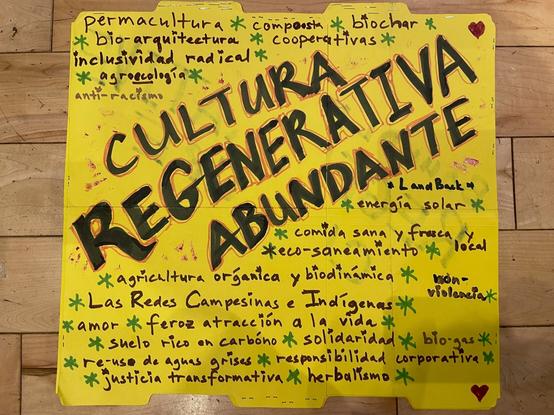 permacultura * composta * biochar
* bio-arquitectura * cooperativas *
inclusividad radical *
* agroecología *
anti-racismo
CULTURA
REGENERATIVA
ABUNDANTE
* LandBack *
* energía solar *
* comida sana y fresca y local
* eco-saneamiento *
* agricultura orgánica y biodinámica *
non-violencia *
* Las Redes Campesinas e Indígenas *
* amor * feroz atracción a la vida *
* suelo rico en carbóno * solidaridad * bio-gas *
* re-uso de aguas grises * responsibilidad corporativa *
* justicia transformativa * herbalismo *